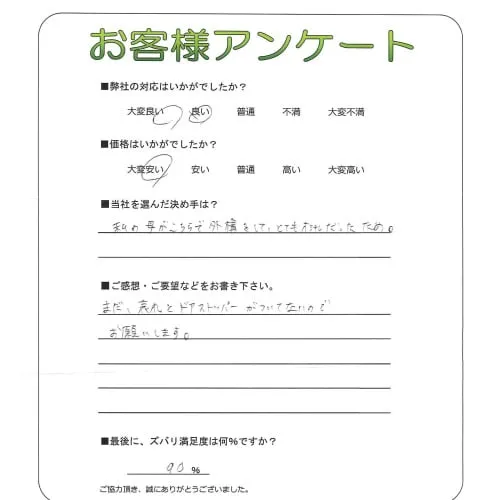 お客様アンケート
■弊社の対応はいかがでしたか?
大変良い 良い 普通 不満 大変不満
■価格はいかがでしたか?
大変安い 安い 普通 高い 大変高い
■当社を選んだ決め手は?
私の母がこちらで外構をして、とてもきれいだったため。
■ご感想・ご要望などをお書き下さい。
まだ、表札とドアストッパーがついてないので
お願いします。
■最後に、ズバリ満足度は何%ですか?
90 %
ご協力頂き、誠にありがとうございました。